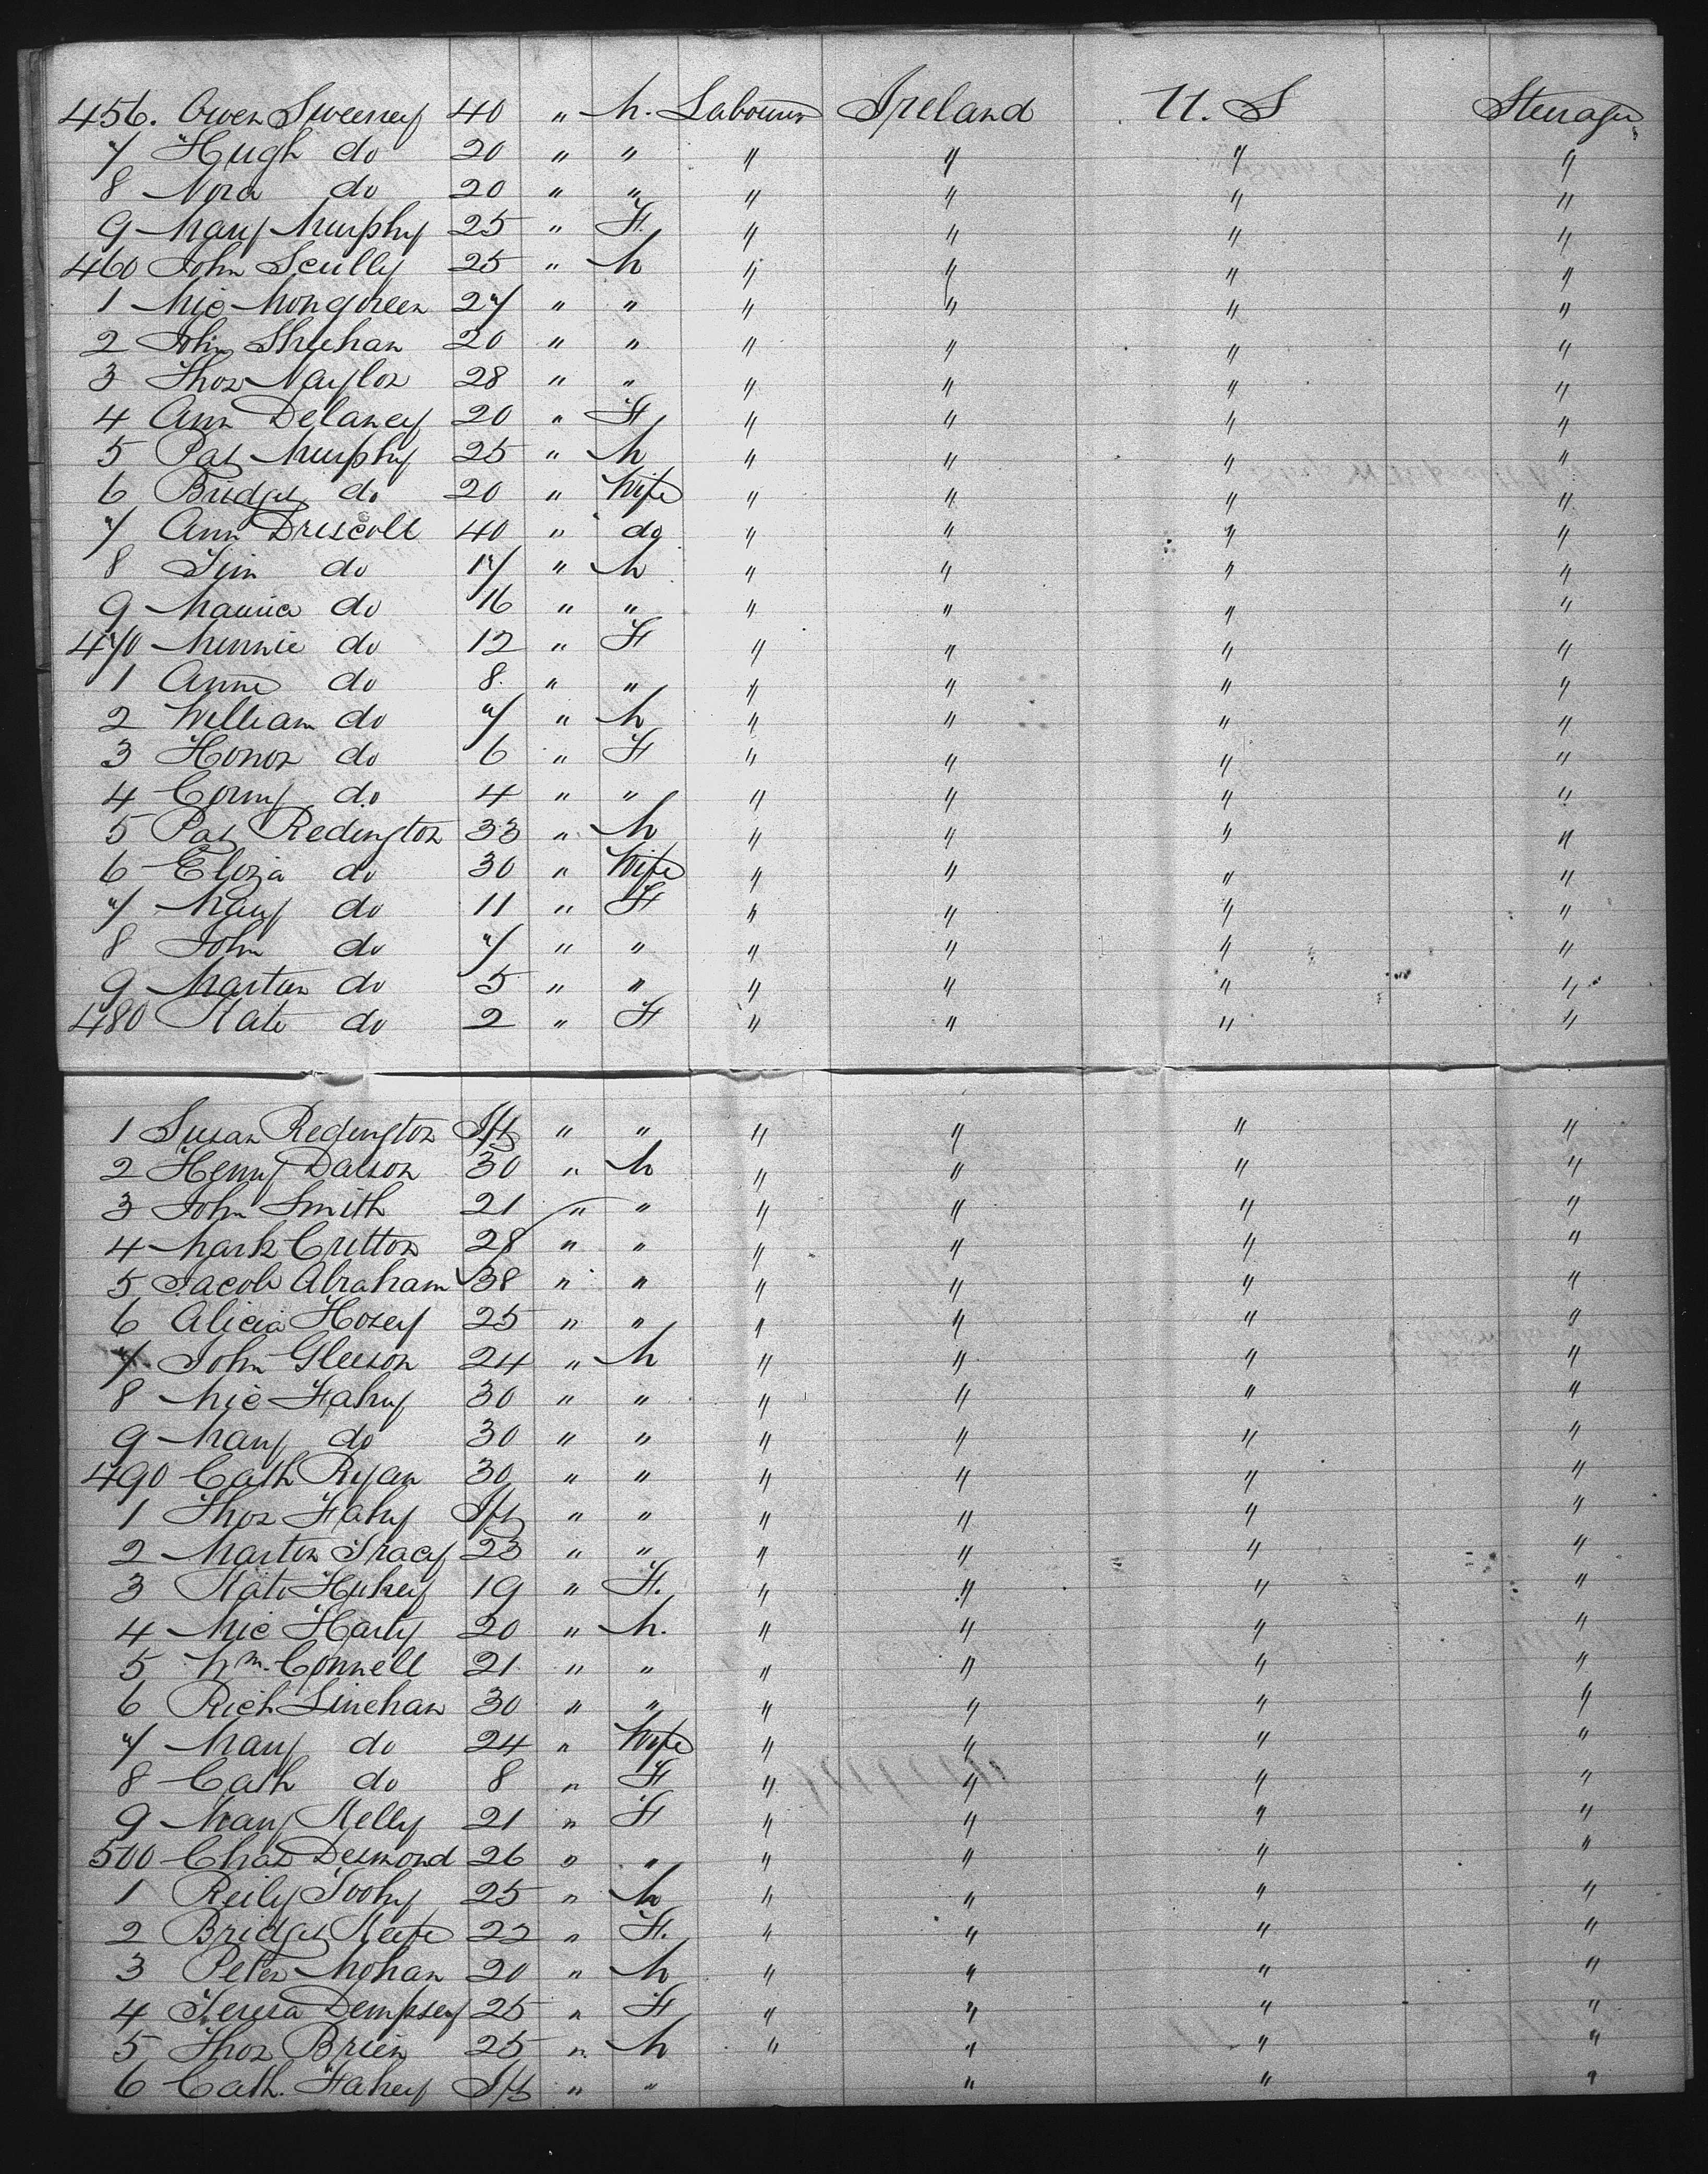 456. Owen Sweeney 40 " M. Labourer Ireland U. S Steerage
7 Hugh do 20 " " " " " "
8 Nora do 20 " " " " " "
9 Mary Murphy 25 " F. " " " "
460 John Scully 25 " M " " " "
1 Mic 27 " " " " " "
2 John Sheehan 20 " " " " " "
3 Thos Naylor 28 " " " " " "
4 Ann Delaney 20 " F " " " "
5 Pat Murphy 25 " M " " " "
6 Bridget do 20 " Wife " " " "
7 Ann Driscoll 40 " do " " " "
8 Tim do 17 " M " " " "
9 Maurice do 16 " " " " " "
470 Minnie do 12 " F " " " "
1 Anne do 8. " " " " " "
2 William do 7 " M " " " "
3 Honor do 6 " F " " " "
4 Corny do 4 " " " " " "
5 Pat Redington 33 " M " " " "
6 Eliza do 30 " Wife " " " "
7 Mary do 11 " F " " " "
8 John do 7 " " " " " "
9 Martin do 5 " " " " " "
480 Kate do 2 " F " " " "
1 Susan Redington Ift " " " " " "
2 Henry Dalson 30 " M " " " "
3 John Smith 21 " " " " " "
4 Mark Critton 28 " " " " " "
5 Jacob Abraham 38 " " " " " "
6 Alicia Hosey 25 " " " " " "
7 John Gleeson 24 " M " " " "
8 Mic Fahy 30 " " " " " "
9 Mary do 30 " " " " " "
490 Cath Ryan 30 " " " " " "
1 Thos Fahy Ift " " " " " "
2 Martin Tracy 23 " " " " " "
3 Kate 19 " F. " " " "
4 Mic Harty 20 " M. " " " "
5 Wm. Connell 21 " " " " " "
6 Rich Linehan 30 " " " " " "
7 Mary do 24 " Wife " " " "
8 Cath do 8 " F " " " "
9 Mary Kelly 21 " F " " " "
500 Chas Desmond 26 " " " " " "
1 Reily Toohy 25 " M " " " "
2 Bridget Keefe 22 " F. " " " "
3 Peter Mohan 20 " M " " " "
4 Teresa Dempsey 25 " F " " " "
5 Thos Brien 25 " M " " " "
6 Cath. Fahey Ift " " " " "